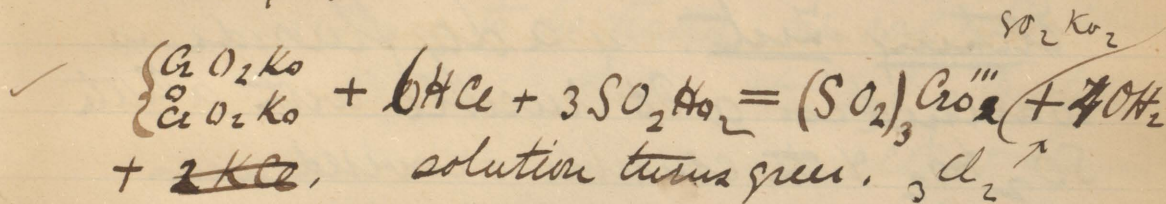 SO2Ko2
{CrO2Ko
O
CrO2Ko + 6HCl + 3SO2Ho2 = (SO2)3Cro'''2 (+ 7OH2
+ 2KCl. solution turns green. 3Cl2